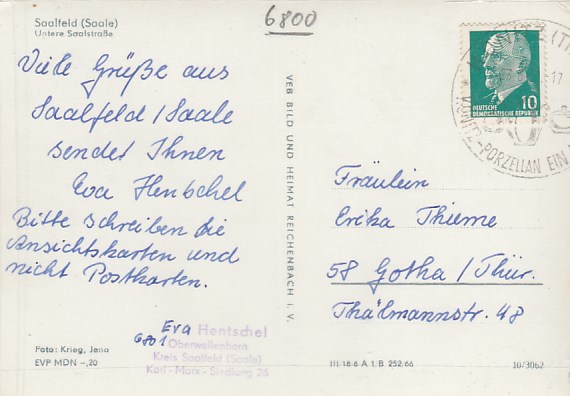 Saalfeld (Saale)
Untere Saalstraße
6800
Viele Grüße aus
Saalfeld/Saale
sendet Ihnen
Eva Hentschel
Bitte schreiben die
Ansichtskarten und
nicht Postkarten.
Eva Hentschel
6801 Oberwellenborn
Kreis Saalfeld (Saale)
Karl-Marx-Siedlung 26
Foto: Krieg, Jena
EVP MDN -,20
VEB BILD UND HEIMAT REICHENBACH I. V.
10
DEUTSCHE
DEMOKRATISCHE REPUBLIK
17
-PORZELLAN EIN
Fräulein
Erika Thieme
58 Gotha/Thür.
Thälmannstr. 48
III-18-6 A 1/B 252/66
10/3062